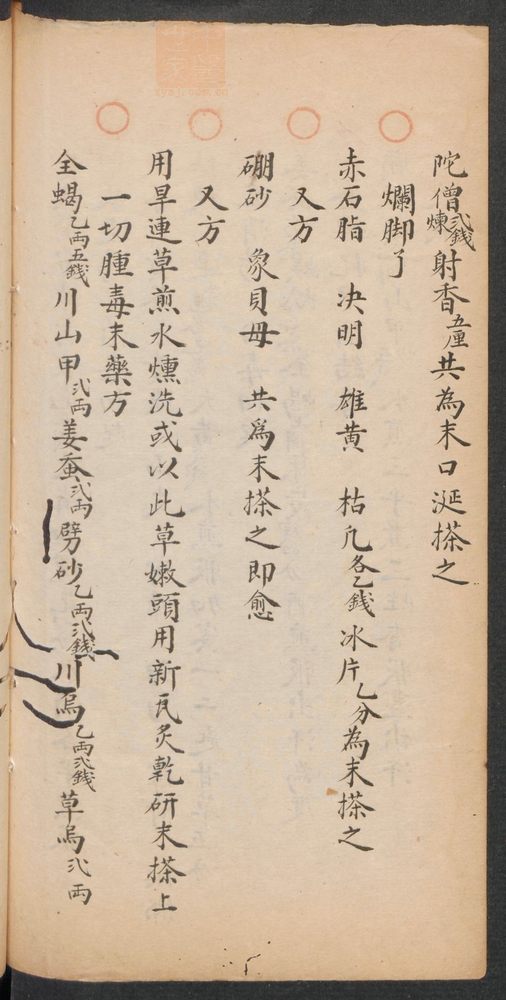 陀僧煉弍錢射香五厘共為末口涎搽之
爛脚了
赤石脂 决明 雄黃 枯凢各乙錢冰片乙分為末搽之
又方
硼砂 象貝母 共爲末搽之即愈
又方
用旱連草煎水燻洗或以此草嫩頭用新瓦炙乾研末搽上
一切腫毒末藥方
全蝎乙两五錢川山甲弍両姜蚕弍両劈砂乙両弍錢川烏乙両弍錢草烏弍両